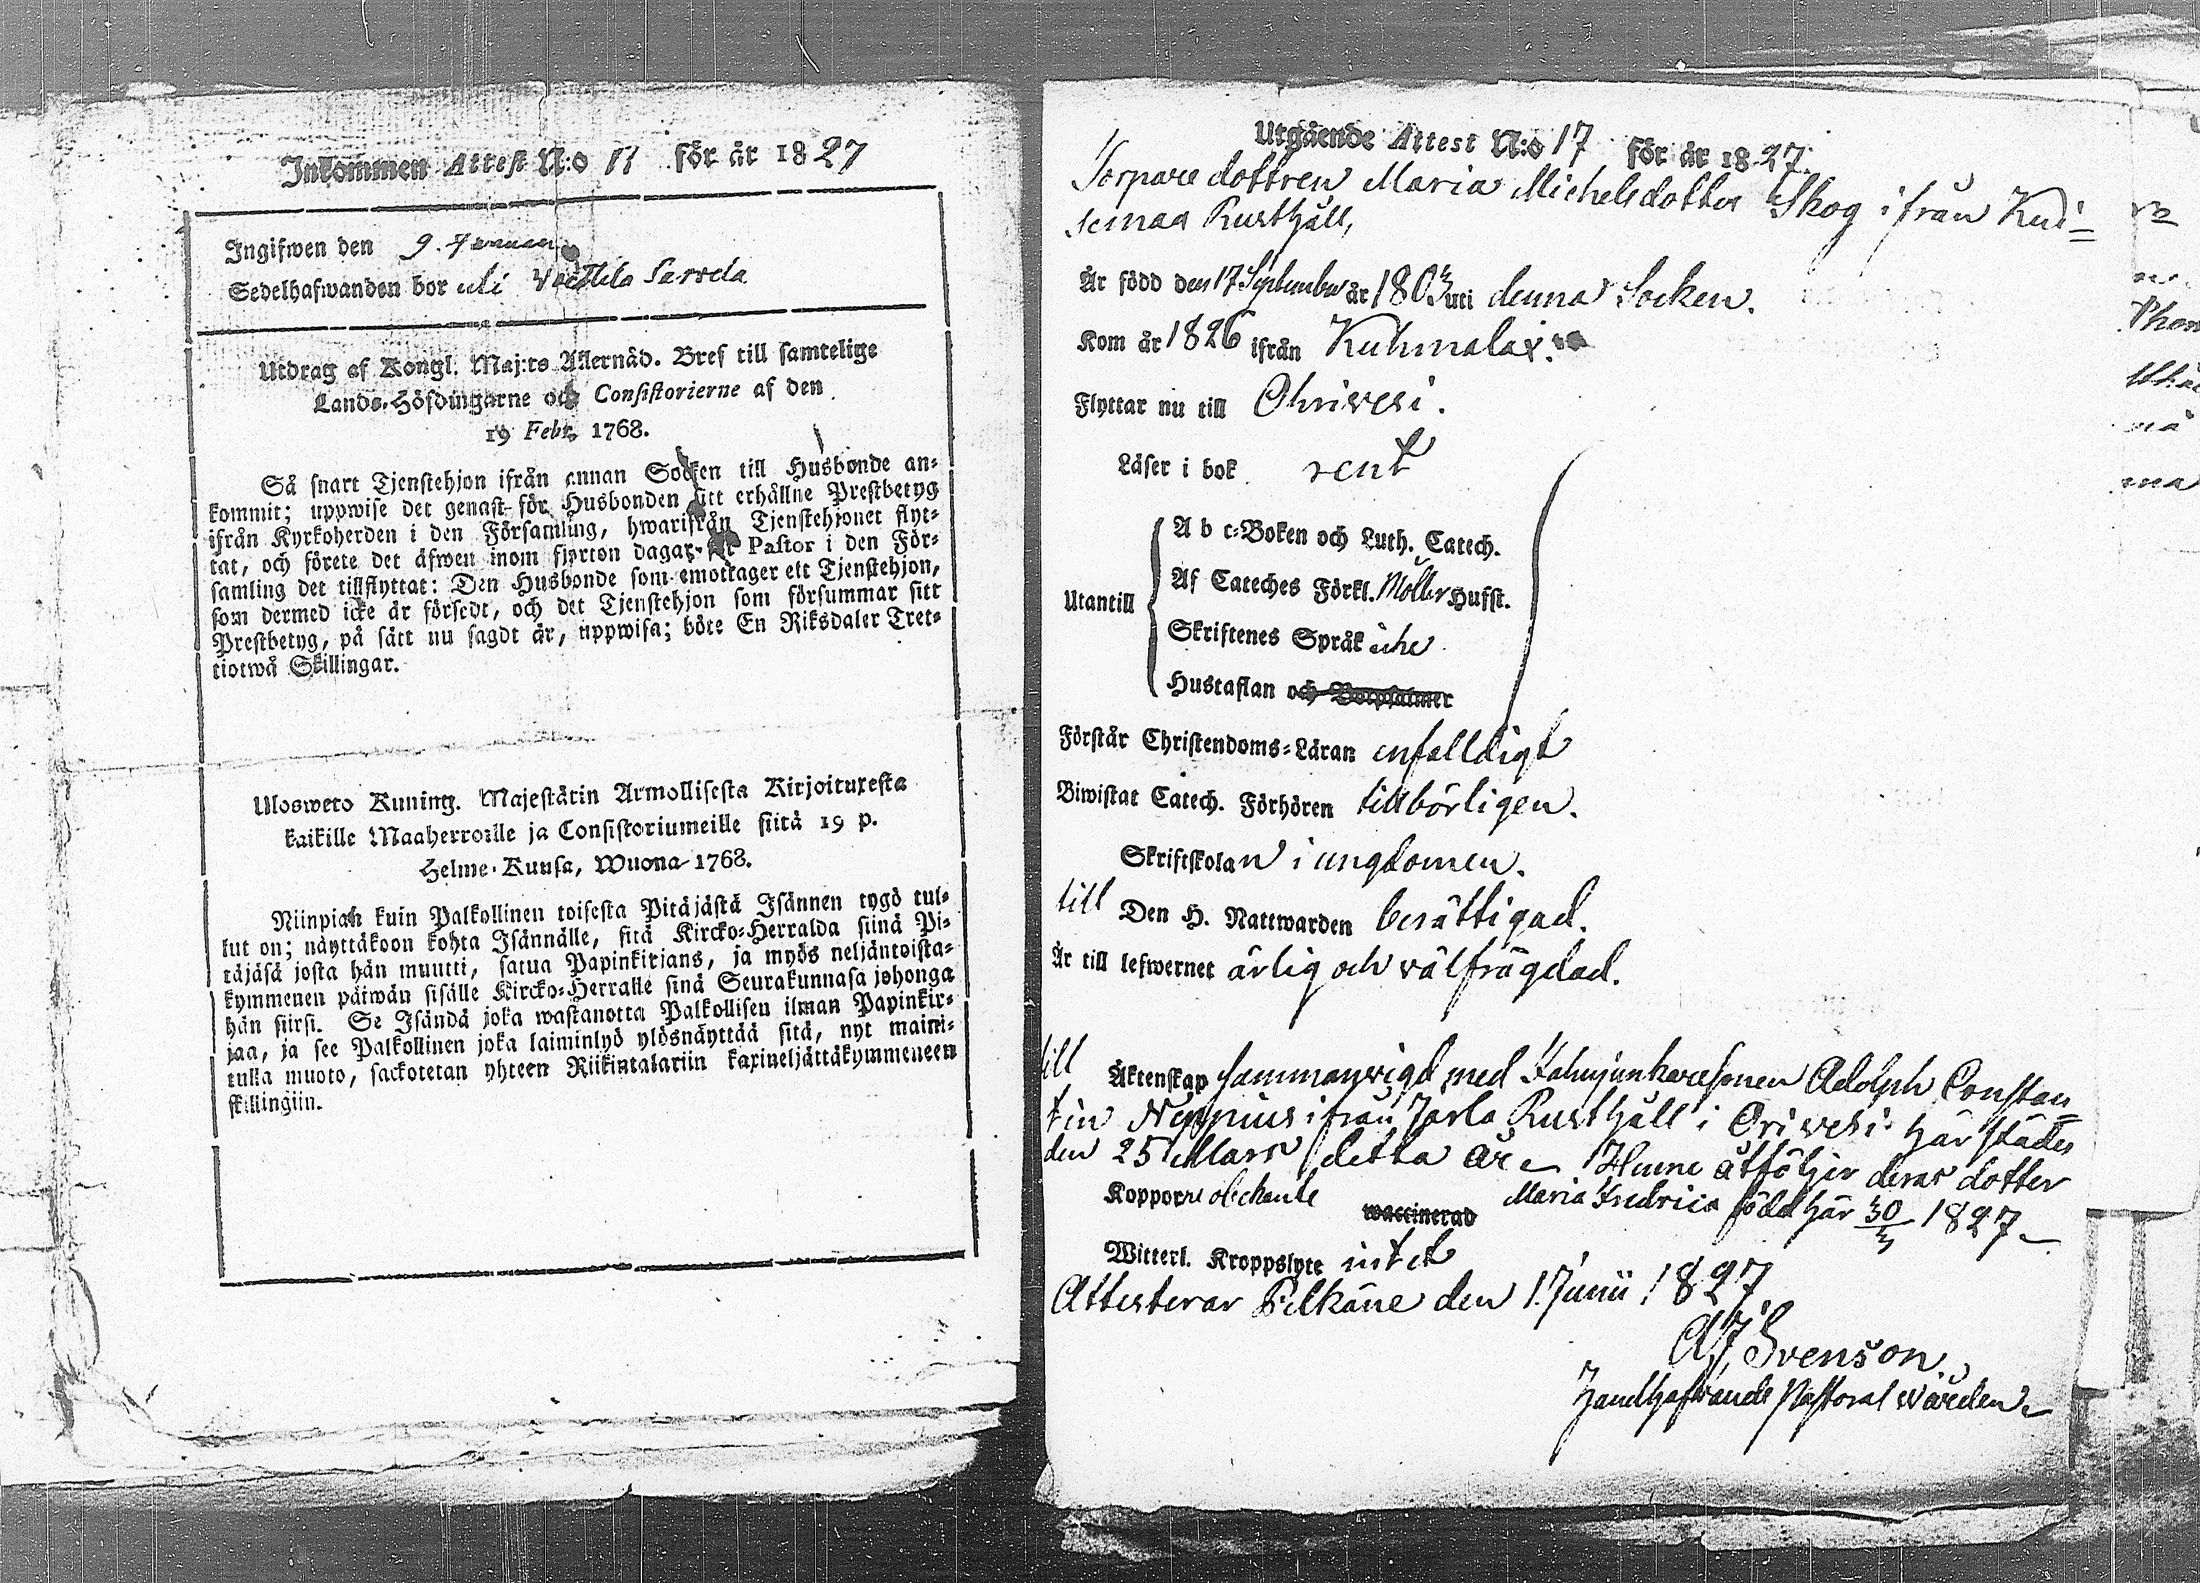 Inkommen Attest N:o 11 för år 1827
Ingifwen den 9. Januari
Sedelhafwanden bor uti Sarsela
Utdrag af Kongl. Maj:ts Allernåd. Bref till samtelige
Lands-Höfdingarne och Consistorierne af den
19 Febr. 1768.
Så snart Tjenstehjon ifrån annan Socken till Husbonde an-
kommit; uppwise det genast för Husbonden sitt erhållne Prestbetyg
ifrån Kyrkoherden i den Församling, hwarifrån Tjenstehjonet flyt-
tat, och förete det äfwen inom fjorton dagar för Pastor i den För-
samling det tillflyttat: Den Husbonde som emottager ett Tjenstehjon,
som dermed icke är försedt, och det Tjenstehjon som försummar sitt
Prestbetyg, på sätt nu sagdt är, uppwisa; böte En Riksdaler Tret-
tiotwå Skillingar.
Ulosweto Kuning. Majestätin Armollisesta Kirjoituxesta
kaikille Maaherroille ja Consistoriumeille siitä 19 p.
Helme-Kuusa, Wuona 1768.
Niinpian kuin Palkollinen toisesta Pitäjästä Isännen tygö tul-
lut on; näyttäkoon kohta Isännälle, sitä Kircko-Herralda siinä Pi-
täjäsä josta hän muutti, satua Papinkirjans, ja myös neljäntoista-
kymmenen päiwän sisälle Kircko-Herralle sinä Seurakunnasa johonga
hän siirsi. Se Isändä joka wastanotta Palkollisen ilman Papinkir-
jaa, ja see Palkollinen joka laiminlyö ylösnäyttää sitä, nyt maini-
tulla muoto, sackotetan yhteen Riikintalariin kaxineljättäkymmeneen
skillingiin.
Utgående Attest N:o 17 för år 1827.
Torpare dottren Maria Michelsdotter Skog ifrån Kui=
semaa Rusthåll,
Är född den 17 September år 1803 uti denna Socken.
Kom år 1826 ifrån Kuhmalax.
Flyttar nu till Ohrivesi.
Läser i bok rent
Utantill
A b c-Boken och Luth. Catech.
Af Cateches Förkl. Möller Hufst.
Skriftenes Språk icke
Hustaflan och Botpsalmer
Förstår Christendoms-Läran enfalldigt
Biwistat Catech. Förhören tillbörligen.
Skriftskolan i ungdomen.
till Den H. Nattwarden berättigad.
Är till lefwernet ärlig och välfrägdad.
till Äktenskap sammanvigd med Fahnjunkaresonen Adolph Constan=
tin Neppius ifrån Jarla Rusthåll i Orivesi härstädes
den 25 Mars detta år. Henne åtföljer deras dotter
Maria Fredrica född här 30/3 1827
Kopporne obekante waccinerad
Witterl. Kroppslyte intet
Attesterar Pelkäne den 1. Junii 1827
A J Svenson
Handhafvande Pastoral vården